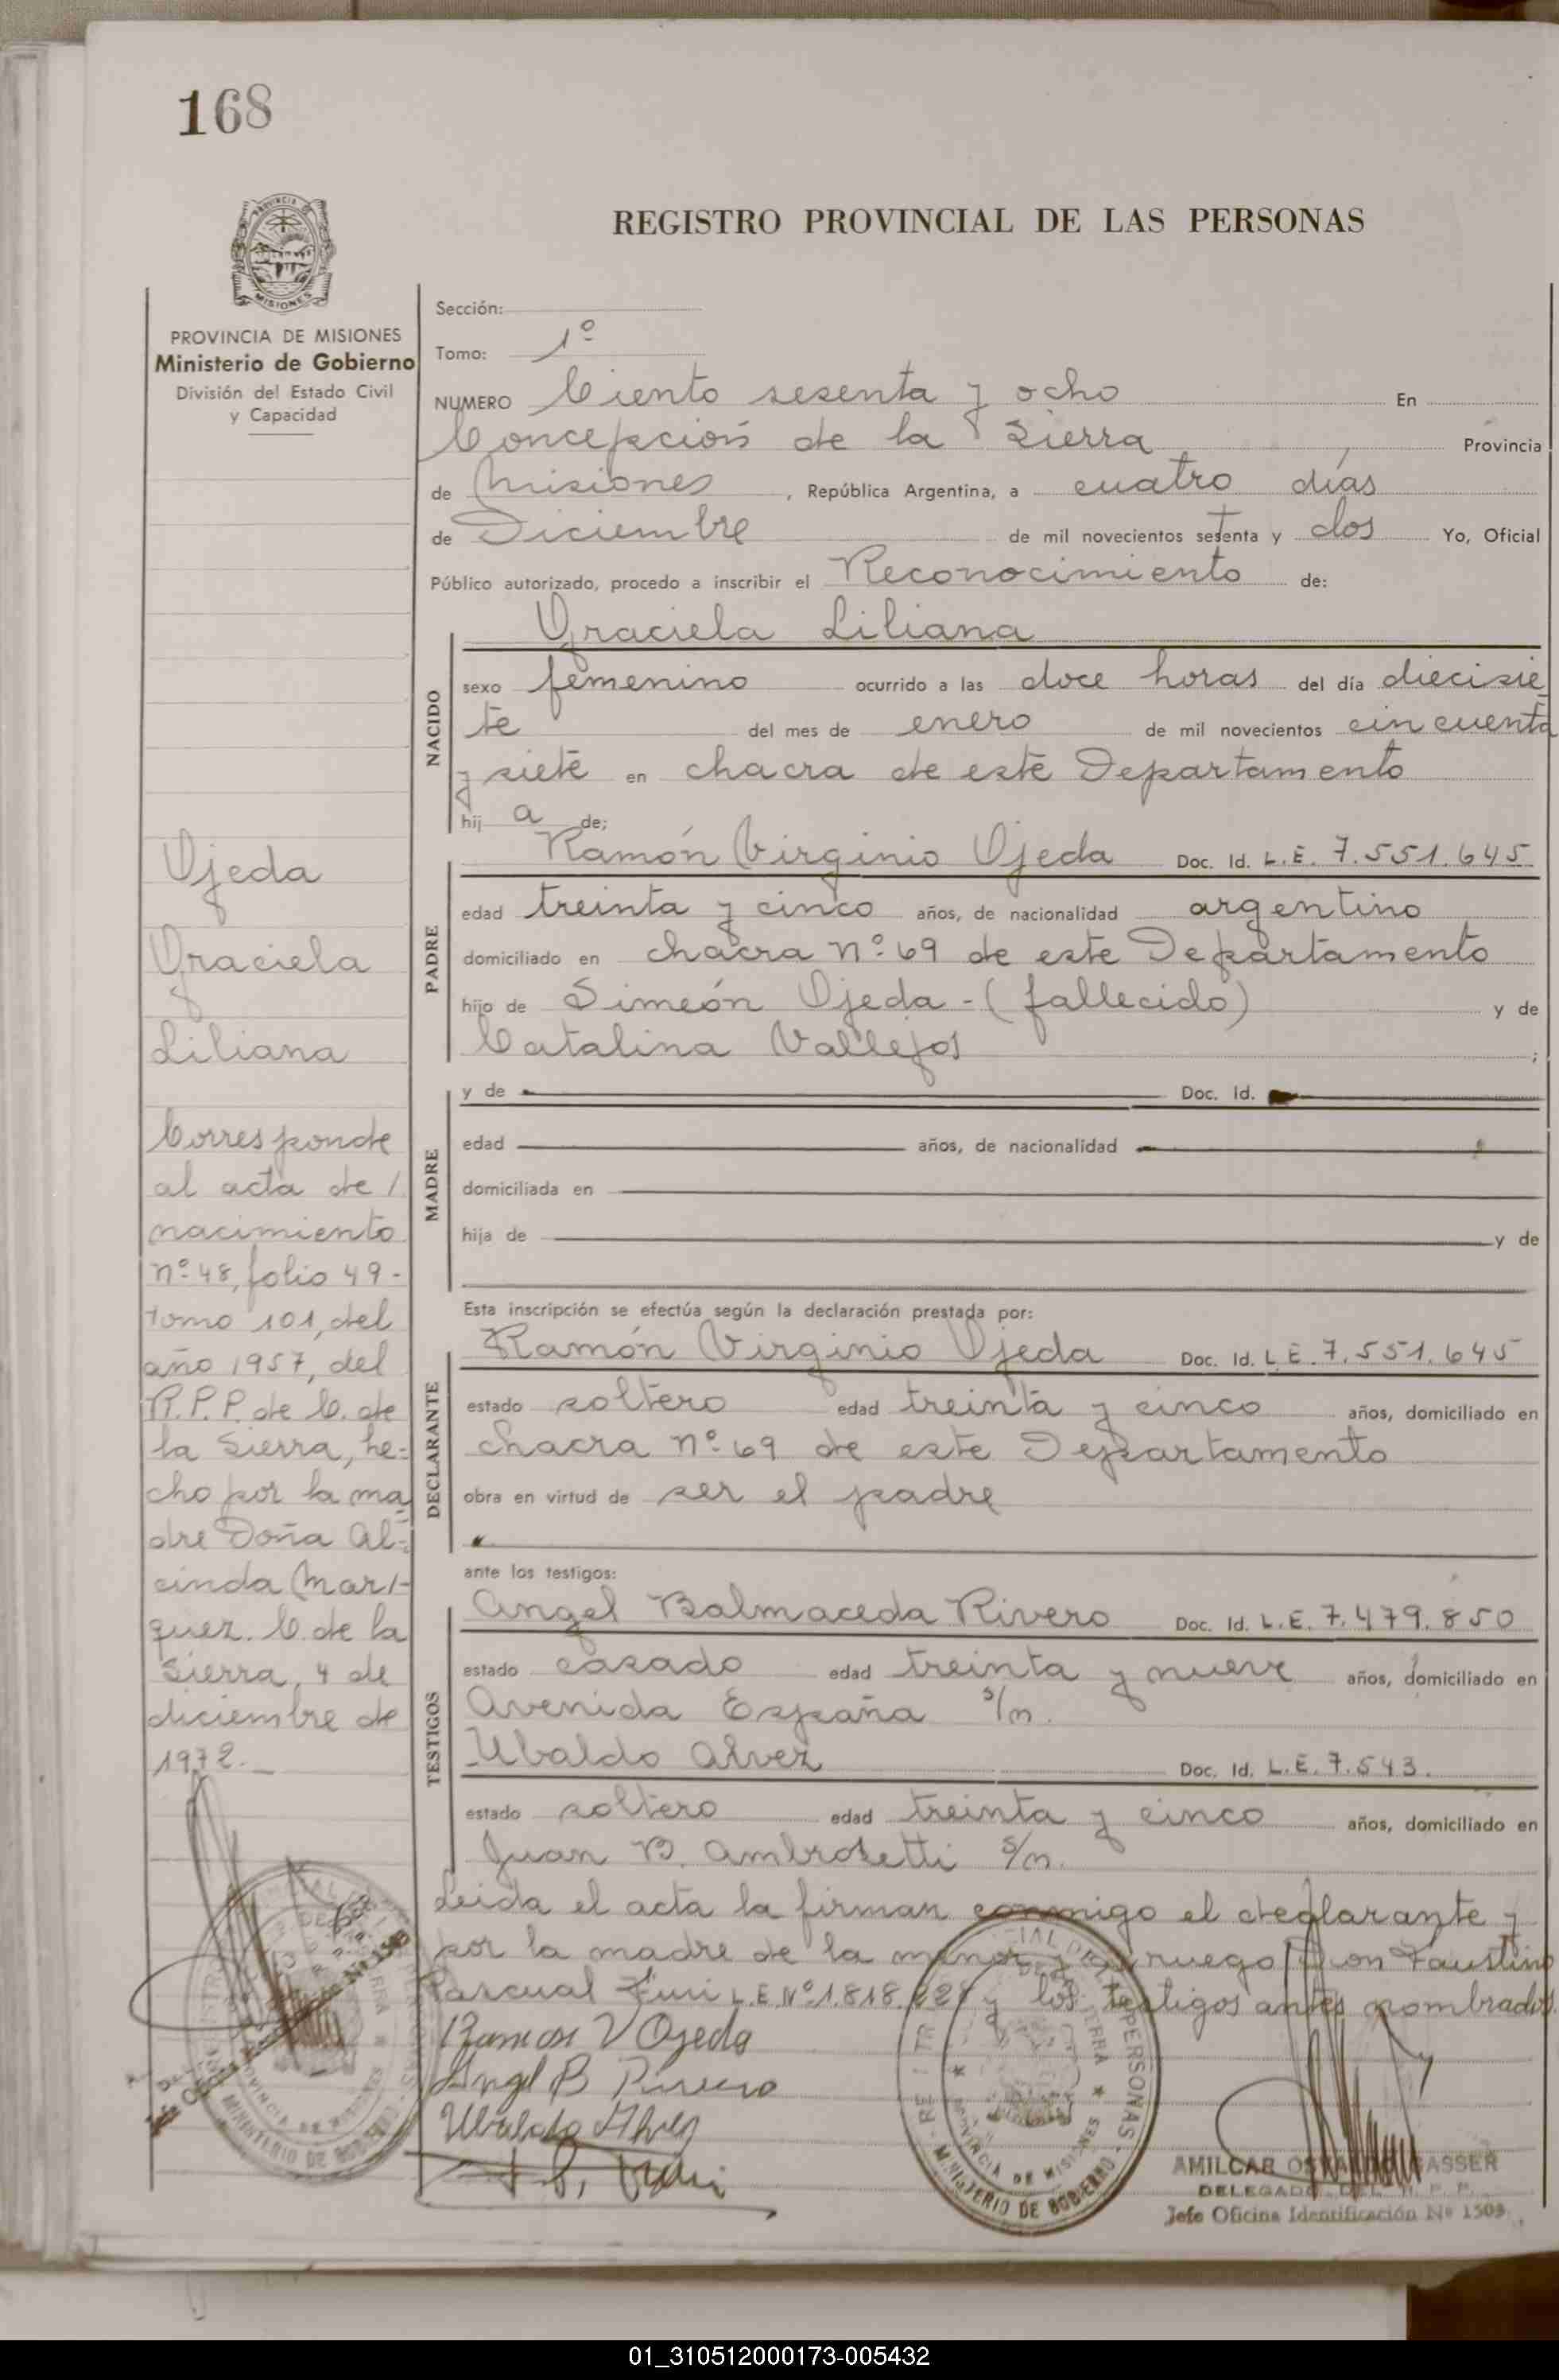 168
REGISTRO PROVINCIAL DE LAS PERSONAS
MISIONES
PROVINCIA DE MISIONES
Ministerio de Gobierno
División del Estado Civil
y Capacidad
Sección:
Tomo: 1º
NUMERO Ciento sesenta y ocho En
Concepción de la Sierra Provincia
de Misiones, República Argentina, a cuatro días
de Diciembre de mil novecientos setenta y dos Yo, Oficial
Público autorizado, procedo a inscribir el Reconocimiento de:
NACIDO
Graciela Liliana
sexo femenino ocurrido a las doce horas del día diecisie
te del mes de enero de mil novecientos cincuenta
y siete en chacra de este Departamento
hij a de;
PADRE
Ramón Virginio Ojeda Doc. Id. L.E. 7.551.645
edad treinta y cinco años, de nacionalidad argentino
domiciliado en chacra nº 69 de este Departamento
hijo de Simeón Ojeda - (fallecido) y de
Catalina Vallejos;
MADRE
y de Doc. Id.
edad años, de nacionalidad
domiciliada en
hija de y de
Esta inscripción se efectúa según la declaración prestada por:
DECLARANTE
Ramón Virginio Ojeda Doc. Id. L.E. 7.551.645
estado soltero edad treinta y cinco años, domiciliado en
chacra nº 69 de este Departamento
obra en virtud de ser el padre
ante los testigos:
TESTIGOS
Angel Balmaceda Rivero Doc. Id. L.E. 7.479.850
estado casado edad treinta y nueve años, domiciliado en
Avenida España s/n.
Ubaldo Alvez Doc. Id. L.E. 7.543.
estado soltero edad treinta y cinco años, domiciliado en
Juan B. Ambrosetti s/n.
Leida el acta la firman conmigo el declarante y
por la madre de la menor ruego Don Faustino
Pascual L.E. Nº 1.818. y los testigos antes nombrados.
Ramon V Ojeda
Angel B Rivero
Ubaldo Alvez
Ojeda
Graciela
Liliana
Corresponde
al acta de /
nacimiento
nº 48, folio 49-
tomo 101, del
año 1957, del
R.P.P. de C. de
la Sierra, he=
cho por la ma
dre Doña Al=
cinda Mar/-
quez. C. de la
Sierra, 4 de
diciembre de
1972.-
PROVINCIA DE MISIONES
MINISTERIO DE GOBIERNO
AMILCAR OSVALDO GASSER
DELEGADO DEL R. P. P.
Jefe Oficina Identificación Nº 1503
01_310512000173-005432